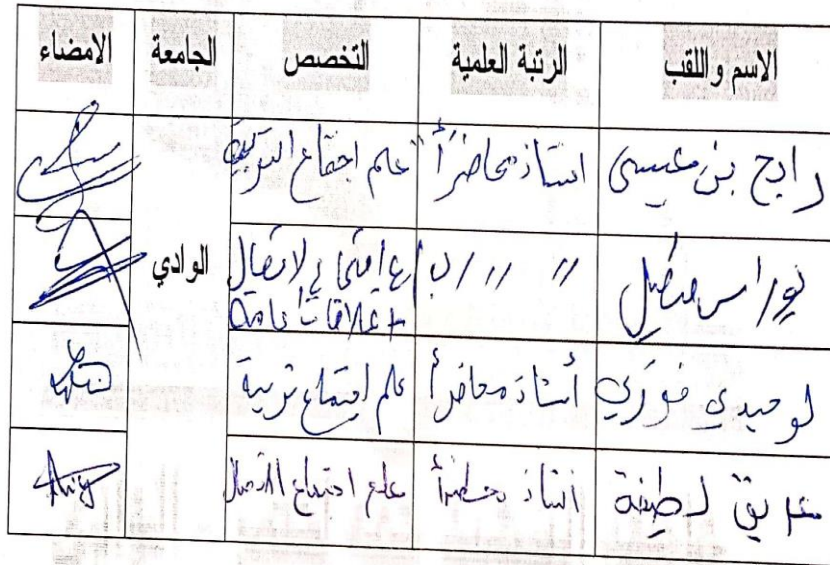 الاسم واللقب الرتبة العلمية التخصص الجامعة الامضاء
رابح بن عيسى استاذ محاضر أ علم اجتماع التربية
" " " / ب ع اجتماع لاتصال الوادي
+ علاقات عامة
لوحيدي فوزي أستاذ محاضر أ علم اجتماع تربية
لطيفة استاذ محاضر أ علم اجتماع الاتصال